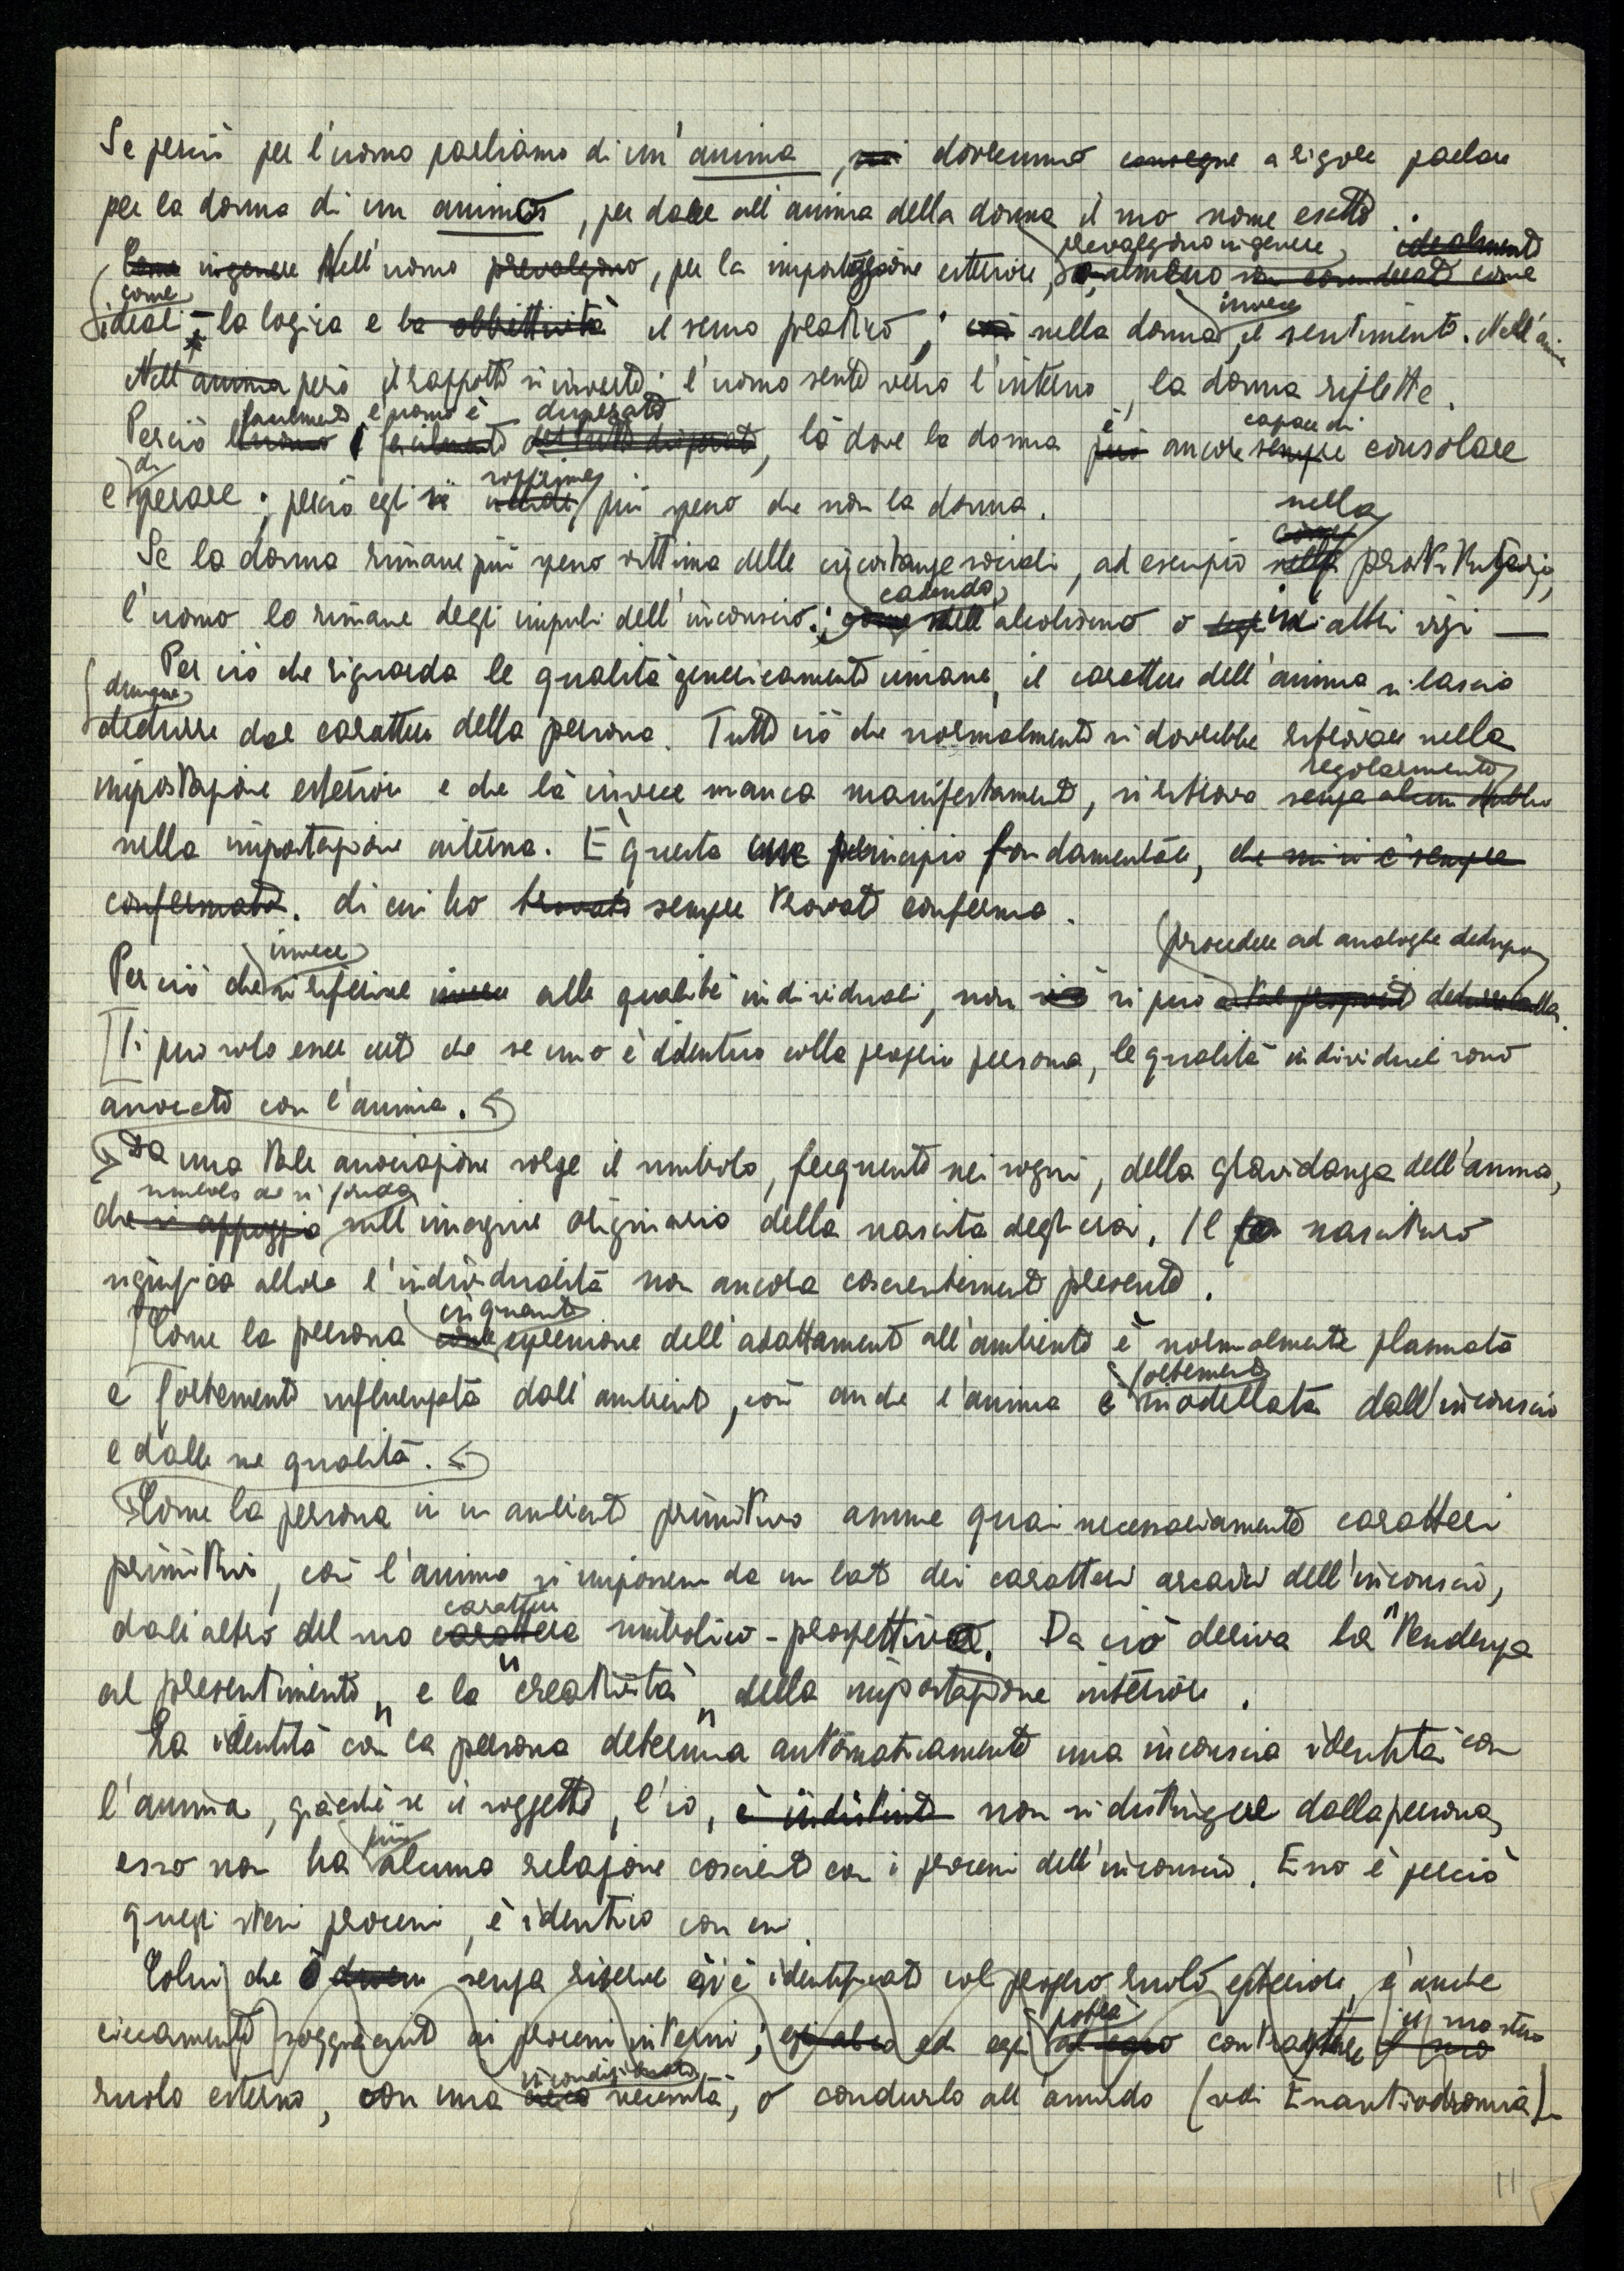 Se perciò per l'uomo parliamo di un'anima, noi dovremmo a rigore parlare
per la donna di un animus, per dare all'anima della donna il suo nome esatto.
prevalgono in genere, idealmente
Come in genere Nell'uomo prevalgono, per la impostazione esteriore, o almeno son considerate come
come invece
ideali - la logica e la obbiettività il senso pratico; così nella donna, il sentimento. Nell'anima
Nell'anima però il rapporto si inverte: l'uomo sente verso l'interno, la donna riflette.
facilmente l'uomo è disperato è capace di
Perciò l'uomo facilmente del tutto disperato, là dove la donna può ancora sempre consolare
di sopprime
e sperare; perciò egli si uccide più spesso che non la donna.
nella
come
Se la donna rimane più spesso vittima delle circostanze sociali, ad esempio nella prostituzione,
cadendo
l'uomo lo rimane degli impulsi dell'inconscio; come nell'alcolismo o in altri vizi —
Per ciò che riguarda le qualità genericamente umane, il carattere dell'anima si lascia
dunque
dedurre dal carattere della persona. Tutto ciò che normalmente si dovrebbe ritrovare nella
regolarmente
impostazione esteriore e che là invece manca manifestamente, si ritrova senza alcun dubbio
nella impostazione interna. È questa un principio fondamentale, che mi si è sempre
confermato. di cui ho trovato sempre trovato conferma.
invece procedere ad analoghe deduzioni
Per ciò che si riferisce invece alle qualità individuali, non ciò si può a tal proposito dedurre nulla.
Si può solo esser certi che se uno è identico colla propria persona, le qualità individuali sono
associate con l'anima.
Da una tale associazione sorge il simbolo, frequente nei sogni, della gravidanza dell'anima,
simbolo che si fonda
che si appoggia sull'imagine originaria della nascita degli eroi. Il nascituro
significa allora l'individualità non ancora coscientemente presente.
in quanto
Come la persona come espressione dell'adattamento all'ambiente è normalmente plasmata
fortemente
e fortemente influenzata dall'ambiente, così anche l'anima è modellata dall'inconscio
e dalle sue qualità.
Come la persona in un ambiente primitivo assume quasi necessariamente caratteri
primitivi, così l'anima si impossessa da un lato dei caratteri arcaici dell'inconscio,
carattere
dall'altro del suo carattere simbolico-prospettivo. Da ciò deriva la "tendenza
al presentimento" e la "creatività" della impostazione interiore.
La identità con la persona determina automaticamente una inconscia identità con
l'anima, giacché se il soggetto, l'io, è indistinto non si distingue dalla persona,
più
esso non ha alcuna relazione cosciente con i processi dell'inconscio. Esso è perciò
quegli stessi processi, è identico con essi.
Colui che senza riserve si è identificato col proprio ruolo esteriore, è anche
potrà il suo stesso
ciecamente soggiacente ai processi interni; ed egli contrastare il suo
incondizionata
ruolo esterno, con una necessità, o condurlo all'assurdo (vedi Enantiodromia).
11